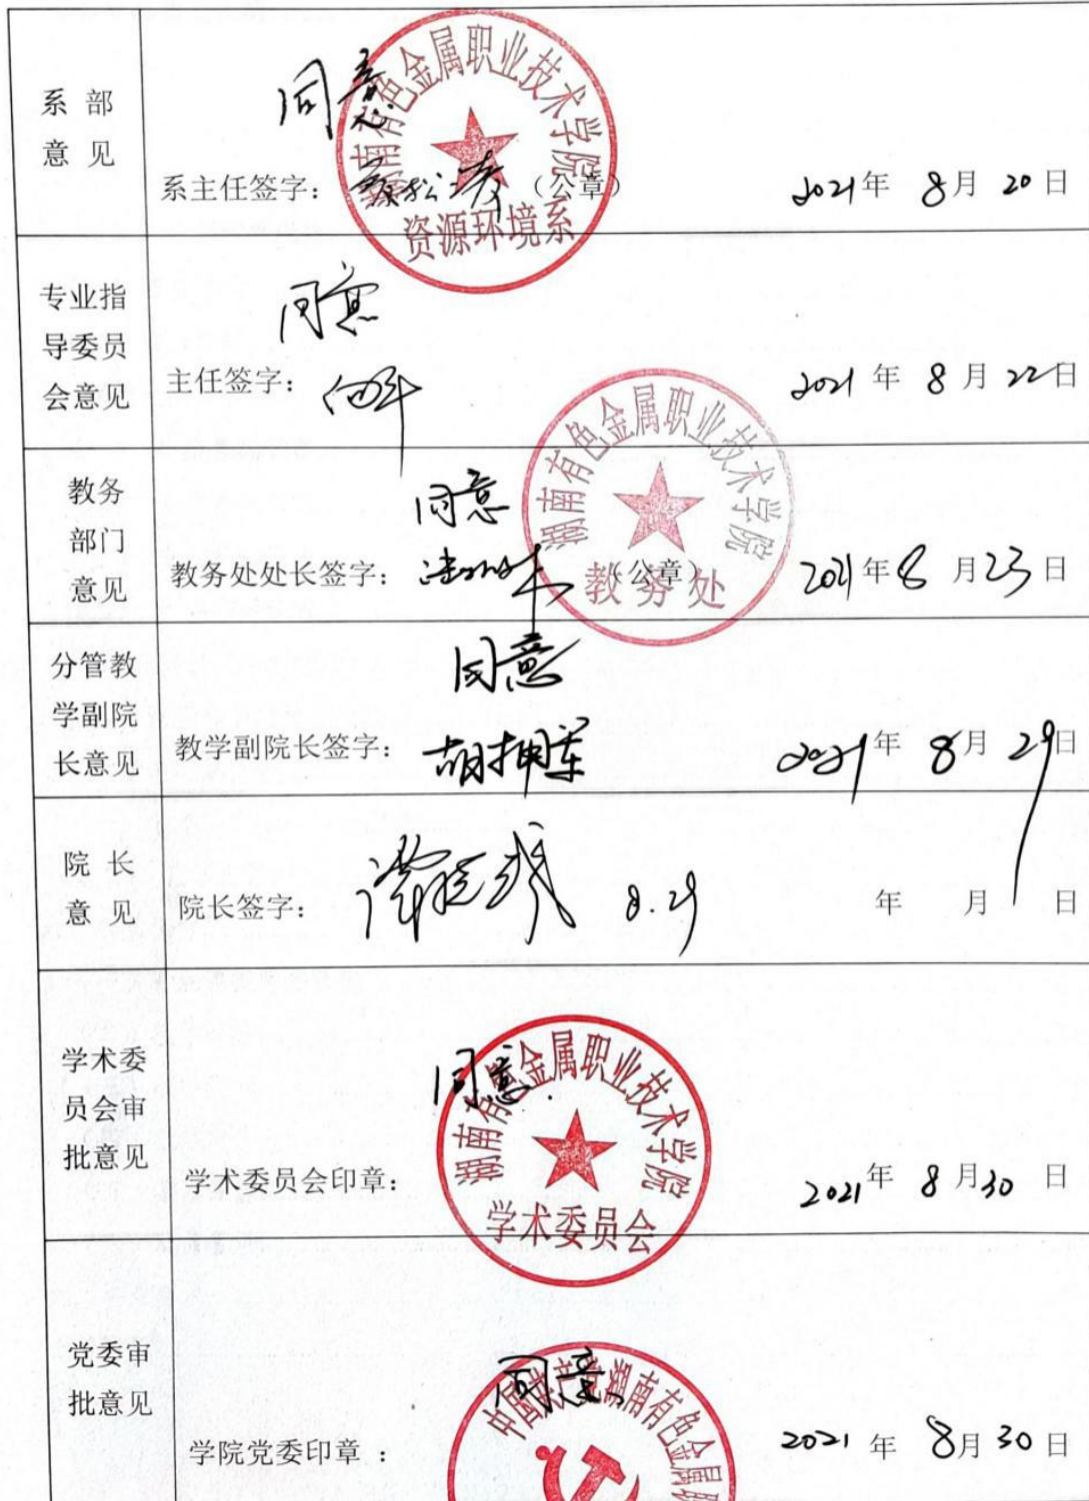 系 部
意 见
同意
系主任签字：
（公章）
2021年 8月 20日
湖南有色金属职业技术学院
资源环境系
专业指
导委员
会意见
同意
主任签字：
2021年 8月 22日
教务
部门
意见
同意
教务处处长签字：
（公章）
2021年 8月 23日
湖南有色金属职业技术学院
教务处
分管教
学副院
长意见
同意
教学副院长签字：
2021年 8月 29日
院 长
意 见
院长签字：
8.29
年 月 日
学术委
员会审
批意见
同意
学术委员会印章：
2021年 8月30日
湖南有色金属职业技术学院
学术委员会
党委审
批意见
同意
学院党委印章：
2021年 8月 30日